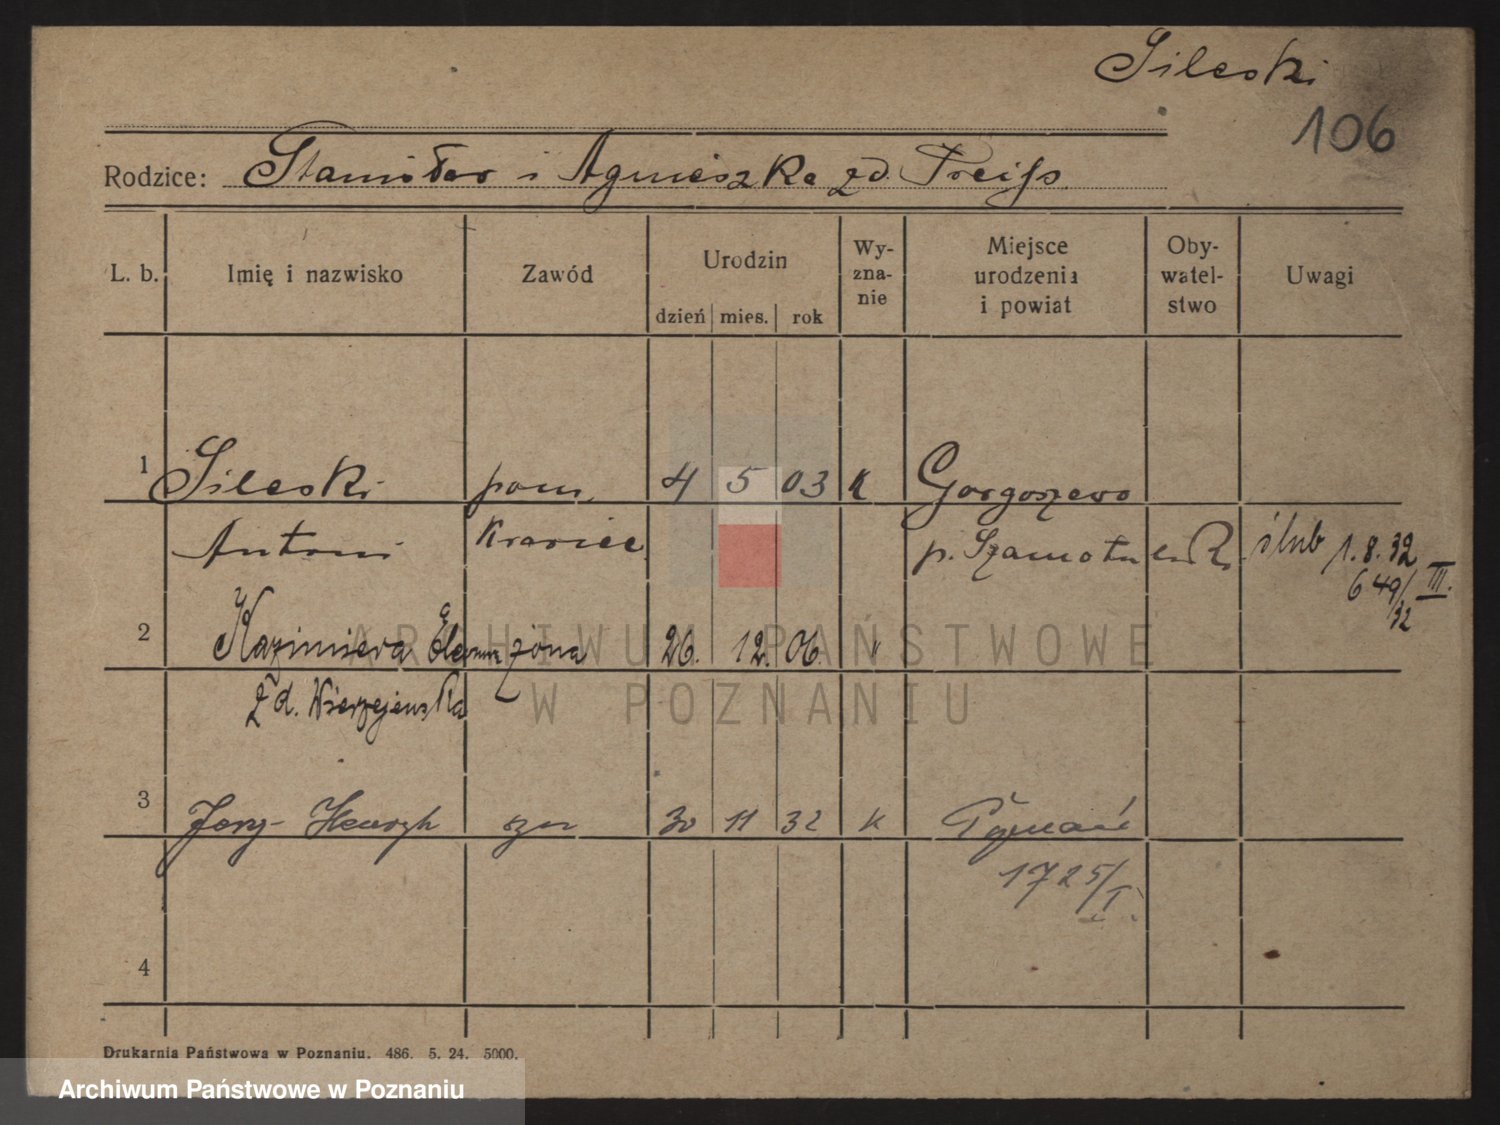 Sileski
106
Rodzice: Stanisław i Agnieszka zd. Preiss
L. b. Imię i nazwisko Zawód Urodzin dzień mies. rok Wy-zna-nie Miejsce urodzenia i powiat Oby-watel-stwo Uwagi
1 Sileski pom. 4 5 03 k Gorgoszewo
Antoni krawiec p. Szamotu ślub 1.8.32
649/32 III.
2 Kazimiera żona 26. 12. 06. "
zd. Wierzejewska
3 Jerzy Henryk syn 30 11 32 k Poznań
1725/I.
4
Drukarnia Państwowa w Poznaniu. 486. 5. 24. 5000.
ARCHIWUM PAŃSTWOWE
W POZNANIU
Archiwum Państwowe w Poznaniu